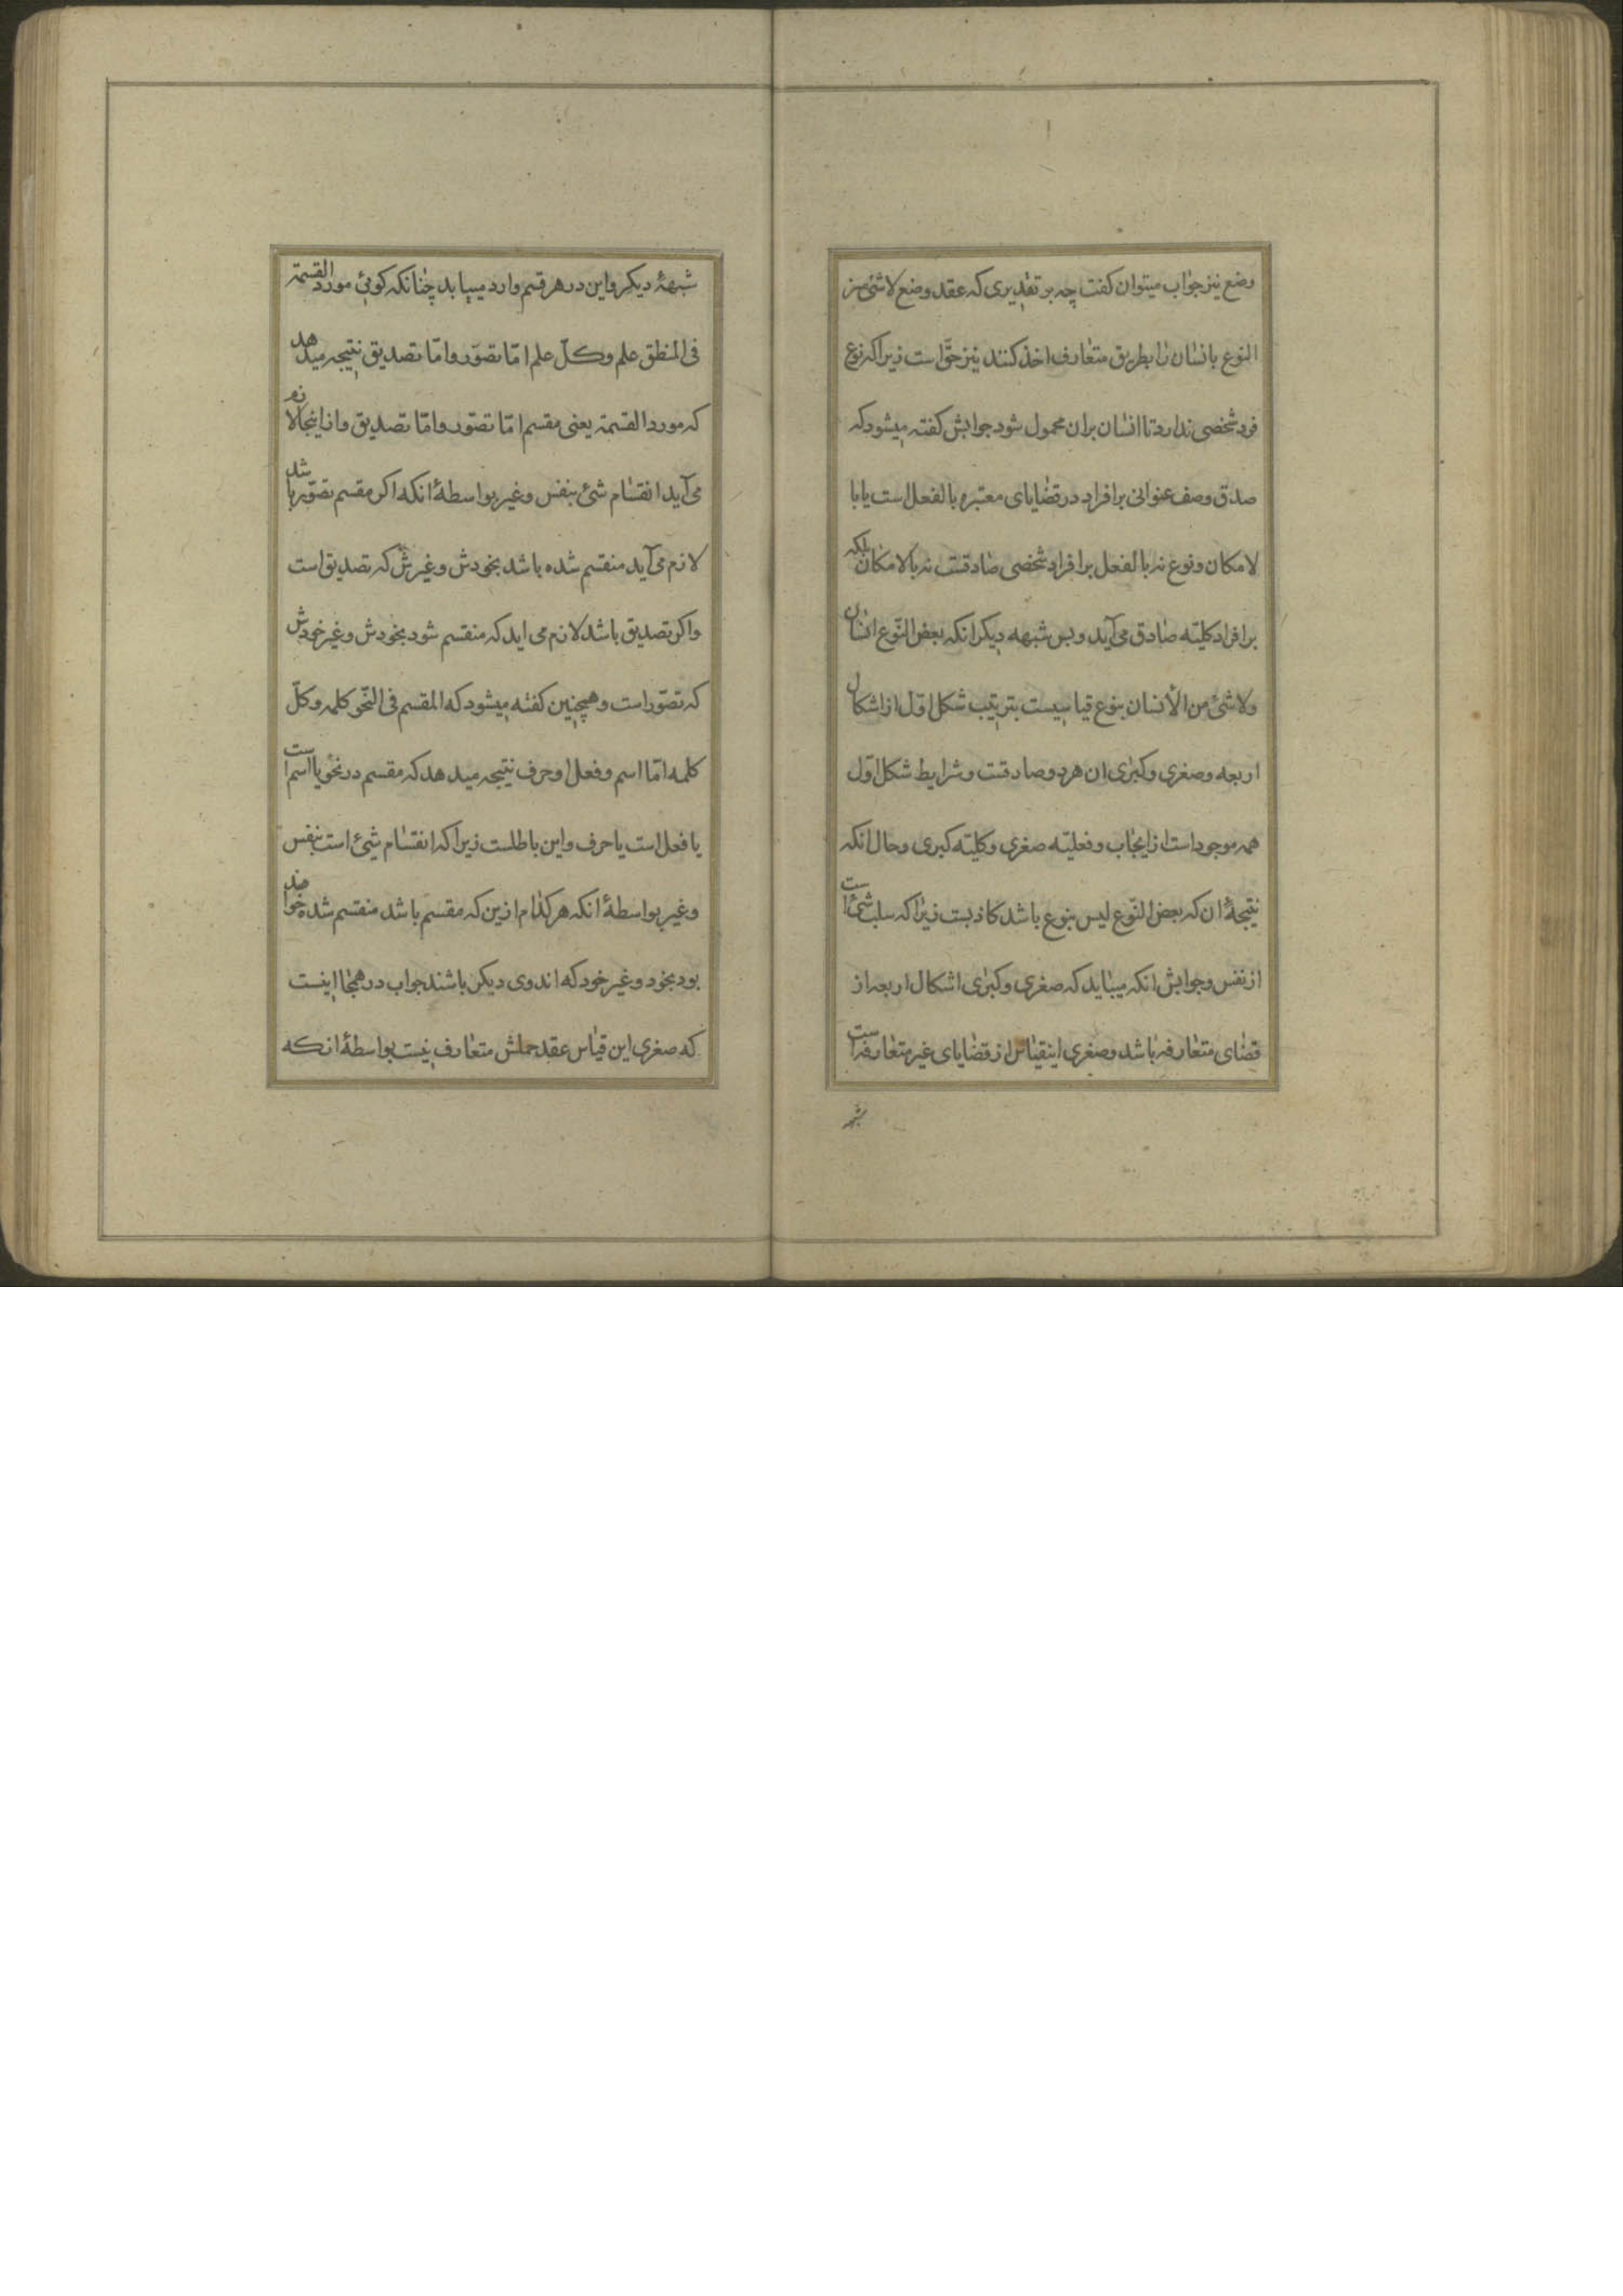 وضع نیز جواب میتوان کفت چه بر تقدیری که عقد وضع لا شئ من
النوع بانسان را بطریق متعارف اخذ کنند نیز حقّ است زیرا که نوع
فرد شخصی ندارد تا انسان بران محمول شود جوابش کفته میشود که
صدق وصف عنوانی بر افراد در قضایای معتبره بالفعل است یا با
لامکان و نوع نه بالفعل بر افراد شخصی صادقست نه بالامکان بلکه
بر افراد کلیّه صادق می‌آید و بس شبهه دیکر انکه بعض النّوع انسان
ولا شئ من الأنسان بنوع قیاسیست بترتیب شکل اول از اشکال
اربعه وصغری وکبری ان هر دو صادقست وشرایط شکل اوّل
همه موجود است از ایجاب وفعلیّه صغری وکلیّه کبری وحال انکه
نتیجۀ ان که بعض النّوع لیس بنوع باشد کاذبست زیرا که سلب شئ است
از نفس وجوابش انکه میباید که صغری وکبرٰی اشکال اربعه از
قضای متعارفه باشد وصغری اینقیاس از قضایای غیر متعارفه است
شبهۀ دیکر واین در هر قسم وارد میباید چنانکه کوئی مورد القسمة
فی المنطق علم وکلّ علم امّا تصوّر وامّا تصدیق نتیجه میدهد
که مورد القسمة یعنی مقسم امّا تصوّر وامّا تصدیق وازاینجا لازم
می‌آید انقسام شئ بنفس وغیر بواسطۀ انکه اکر مقسم تصوّر باشد
لازم می‌آید منقسم شده باشد بخودش وغیرش که تصدیق است
واکر تصدیق باشد لازم می اید که منقسم شود بخودش وغیر خودش
که تصوّر است وهمچنین کفته میشود که المقسم فی النّحو کلمه وکلّ
کلمه امّا اسم وفعل او حرف نتیجه میدهد که مقسم در نحو یا اسم است
یا فعل است یا حرف واین باطلست زیرا که انقسام شیئ است بنفس
وغیر بواسطۀ انکه هر کدام ازین که مقسم باشد منقسم شده خواهند
بود بخود وغیر خود که اندوی دیکر باشند جواب در همجا اینست
که صغری این قیاس عقد حملش متعارف نیست بواسطۀ انکه